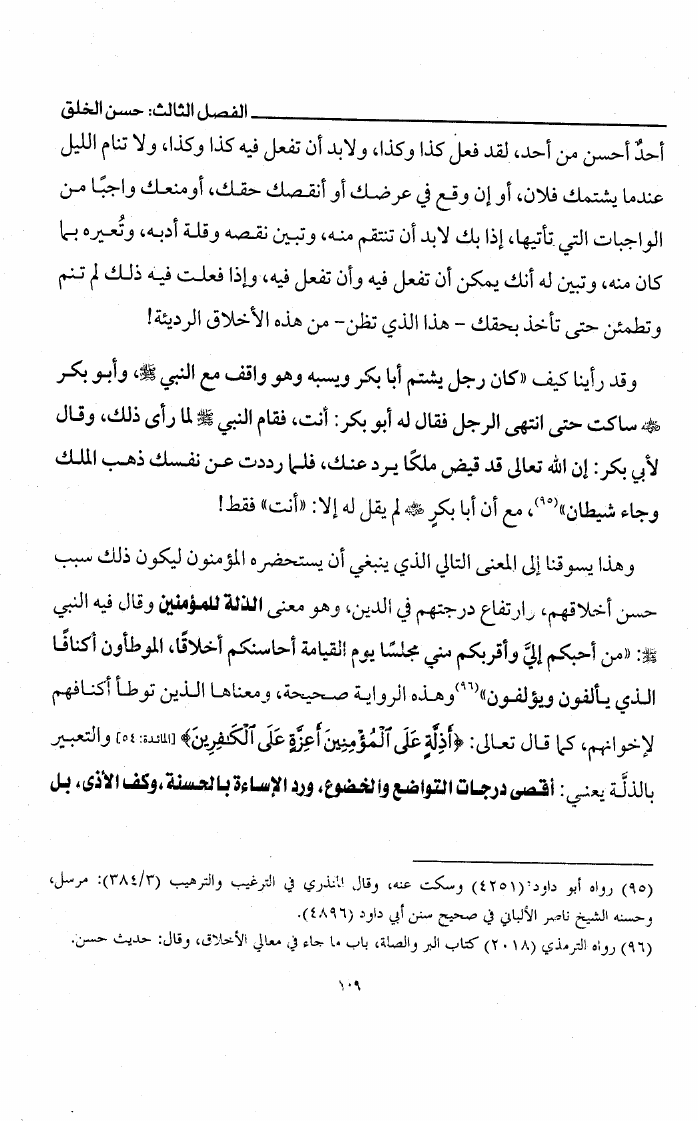 الفصل الثالث: حسن الخلق
أحدٌ أحسن من أحد، لقد فعل كذا وكذا، ولابد أن تفعل فيه كذا وكذا، ولا تنام الليل
عندما يشتمك فلان، أو إن وقع في عرضك أو أنقصك حقك، أومنعك واجبًا من
الواجبات التي تأتيها، إذا بك لابد أن تنتقم منه، وتبين نقصه وقلة أدبه، وتُعيره بما
كان منه، وتبين له أنك يمكن أن تفعل فيه وأن تفعل فيه، وإذا فعلت فيه ذلك لم تنم
وتطمئن حتى تأخذ بحقك – هذا الذي تظن– من هذه الأخلاق الرديئة!
وقد رأينا كيف «كان رجل يشتم أبا بكر ويسبه وهو واقف مع النبي ﷺ، وأبو بكر
رضي الله عنه ساكت حتى انتهى الرجل فقال له أبو بكر: أنت، فقام النبي ﷺ لما رأى ذلك، وقال
لأبي بكر: إن الله تعالى قد قيض ملكًا يرد عنك، فلما رددت عن نفسك ذهب الملك
وجاء شيطان»(٩٥)، مع أن أبا بكرٍ رضي الله عنه لم يقل له إلا: «أنت» فقط!
وهذا يسوقنا إلى المعنى التالي الذي ينبغي أن يستحضره المؤمنون ليكون ذلك سبب
حسن أخلاقهم، وارتفاع درجتهم في الدين، وهو معنى الذلة للمؤمنين وقال فيه النبي
ﷺ: «من أحبكم إليَّ وأقربكم مني مجلسًا يوم القيامة أحاسنكم أخلاقًا، الموطأون أكنافًا
الذي يألفون ويؤلفون»(٩٦) وهذه الرواية صحيحة، ومعناها الذين توطأ أكنافهم
لإخوانهم، كما قال تعالى: ﴿أَذِلَّةٍ عَلَى ٱلْمُؤْمِنِينَ أَعِزَّةٍ عَلَى ٱلْكَٰفِرِينَ﴾ [المائدة: ٥٤] والتعبير
بالذلَّة يعني: أقصى درجات التواضع والخضوع، ورد الإساءة بالحسنة، وكف الأذى، بل
(٩٥) رواه أبو داود: (٤٢٥١) وسكت عنه، وقال المنذري في الترغيب والترهيب (٣/ ٣٨٤): مرسل،
وحسنه الشيخ ناصر الألباني في صحيح سنن أبي داود (٤٨٩٦).
(٩٦) رواه الترمذي (٢٠١٨) كتاب البر والصلة، باب ما جاء في معالي الأخلاق، وقال: حديث حسن.
١٠٩